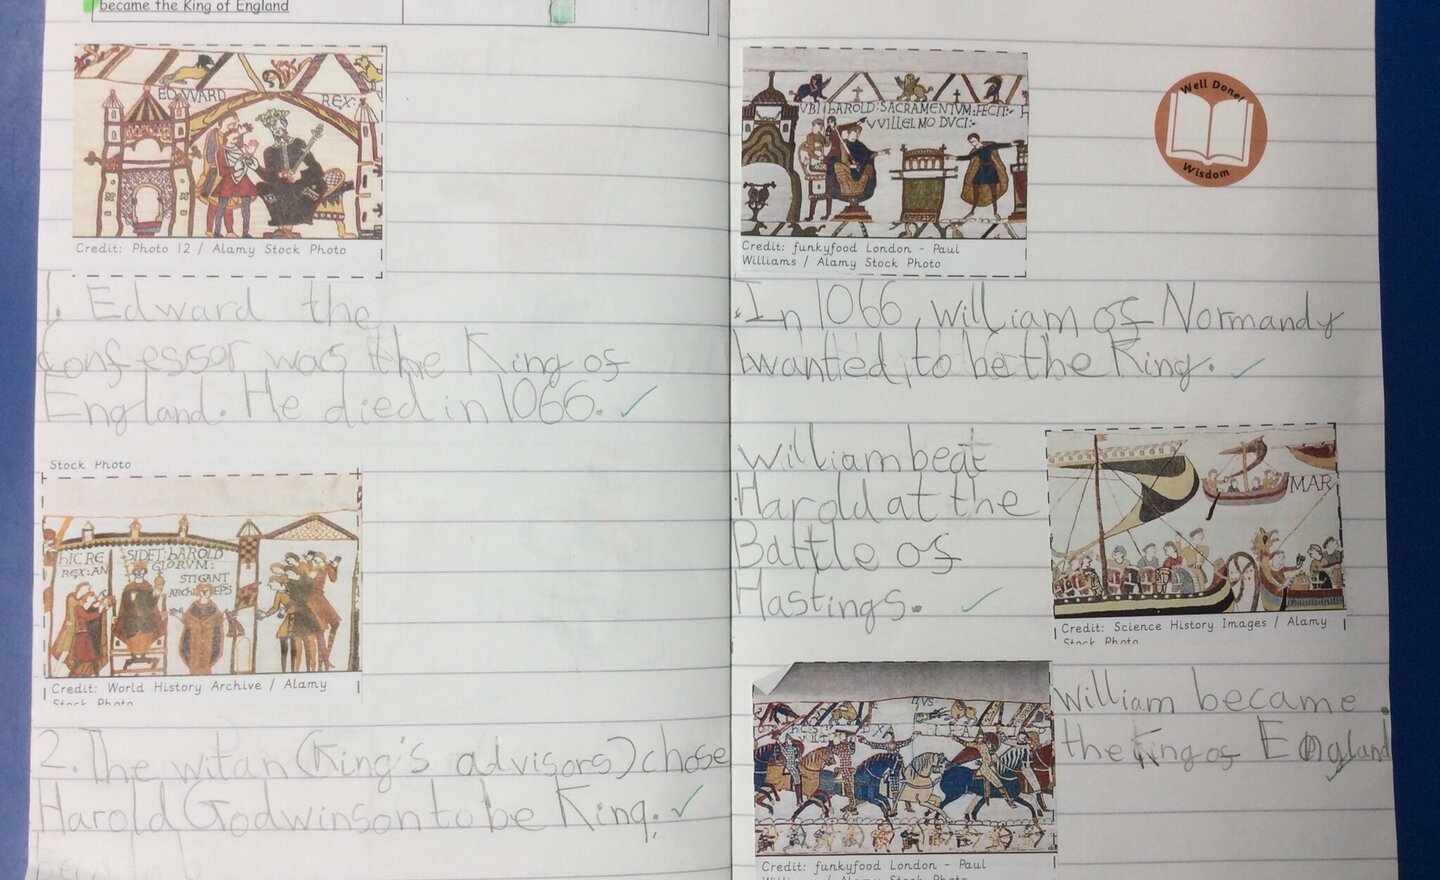 became the King of England
EDWARD REX:
Credit: Photo 12 / Alamy Stock Photo
1. Edward the
Confessor was the King of
England. He died in 1066.
Stock Photo
HIC RE SIDET: HAROLD
REX: AN GLORVM:
STIGANT
ARCHI EPS
Credit: World History Archive / Alamy
Stock Photo
2. The witan (King's advisors) chose
Harold Godwinson to be King.
VBI hAROLD: SACRAMENTVM: FECIT:-
VVILLELMO DVCI:-
Credit: funkyfood London - Paul
Williams / Alamy Stock Photo
Well Done!
Wisdom
In 1066, william of Normandy
wanted to be the King.
William beat
Harold at the
Battle of
Hastings.
MAR
Credit: Science History Images / Alamy
Stock Photo
William became
the King of England
Credit: funkyfood London - Paul
Williams / Alamy Stock Photo